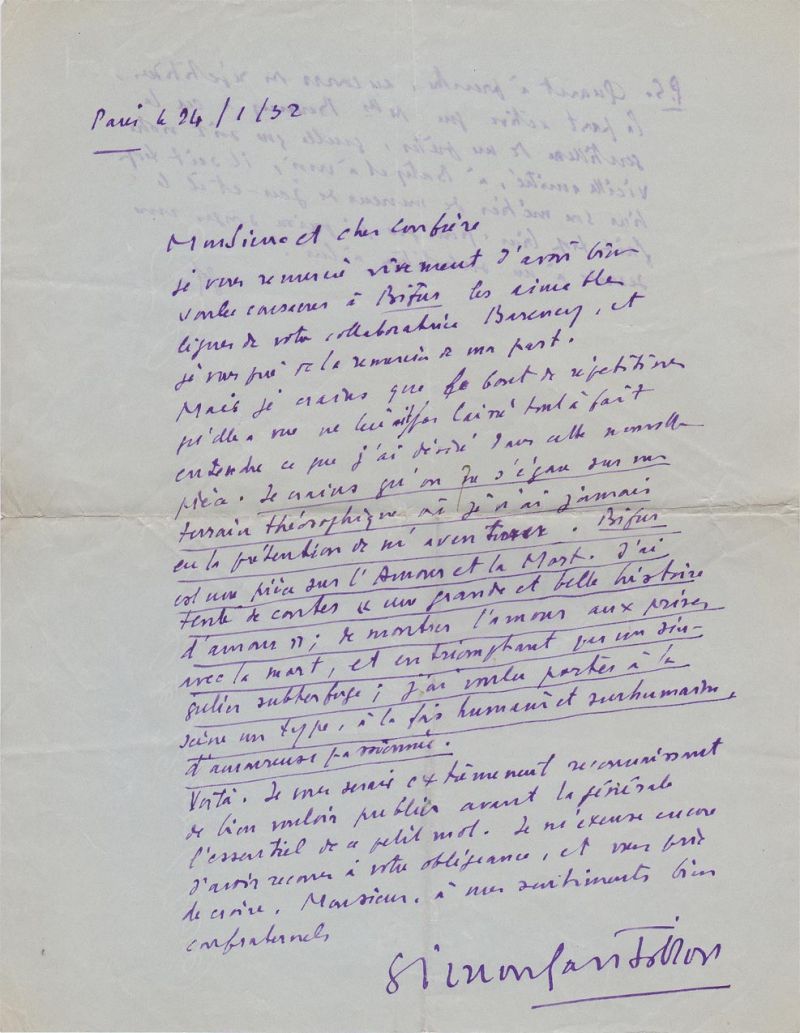 Paris le 24/1/32
Monsieur et cher confrère
Je vous remercie vivement d'avoir bien
voulu consacrer à Bifur les aimables
lignes de votre collaboratrice Barency, et
je vous prie de la remercier de ma part.
Mais je crains que le bout de répétition
qu'elle a vue ne lui ait pas laissé tout à fait
entendre ce que j'ai désiré dans cette nouvelle
pièce. Je crains qu'on ne s'égare sur un
terrain théosophique où je n'ai jamais
eu la prétention de m'aventurer. Bifur
est une pièce sur l'Amour et la Mort. J'ai
tenté de conter « une grande et belle histoire
d'amour »; de montrer l'amour aux prises
avec la mort, et en triomphant par un sin-
gulier subterfuge; j'ai voulu porter à la
scène un type, à la fois humain et surhumain,
d'amoureuse passionnée.
Voilà. Je vous serais extrêmement reconnaissant
de bien vouloir publier avant la générale
l'essentiel de ce petit mot. Je m'excuse encore
d'avoir recours à votre obligeance, et vous prie
de croire, Monsieur, à mes sentiments bien
confraternels
Simon Gantillon
P.S. Quant à prendre, au cours de répétitions,